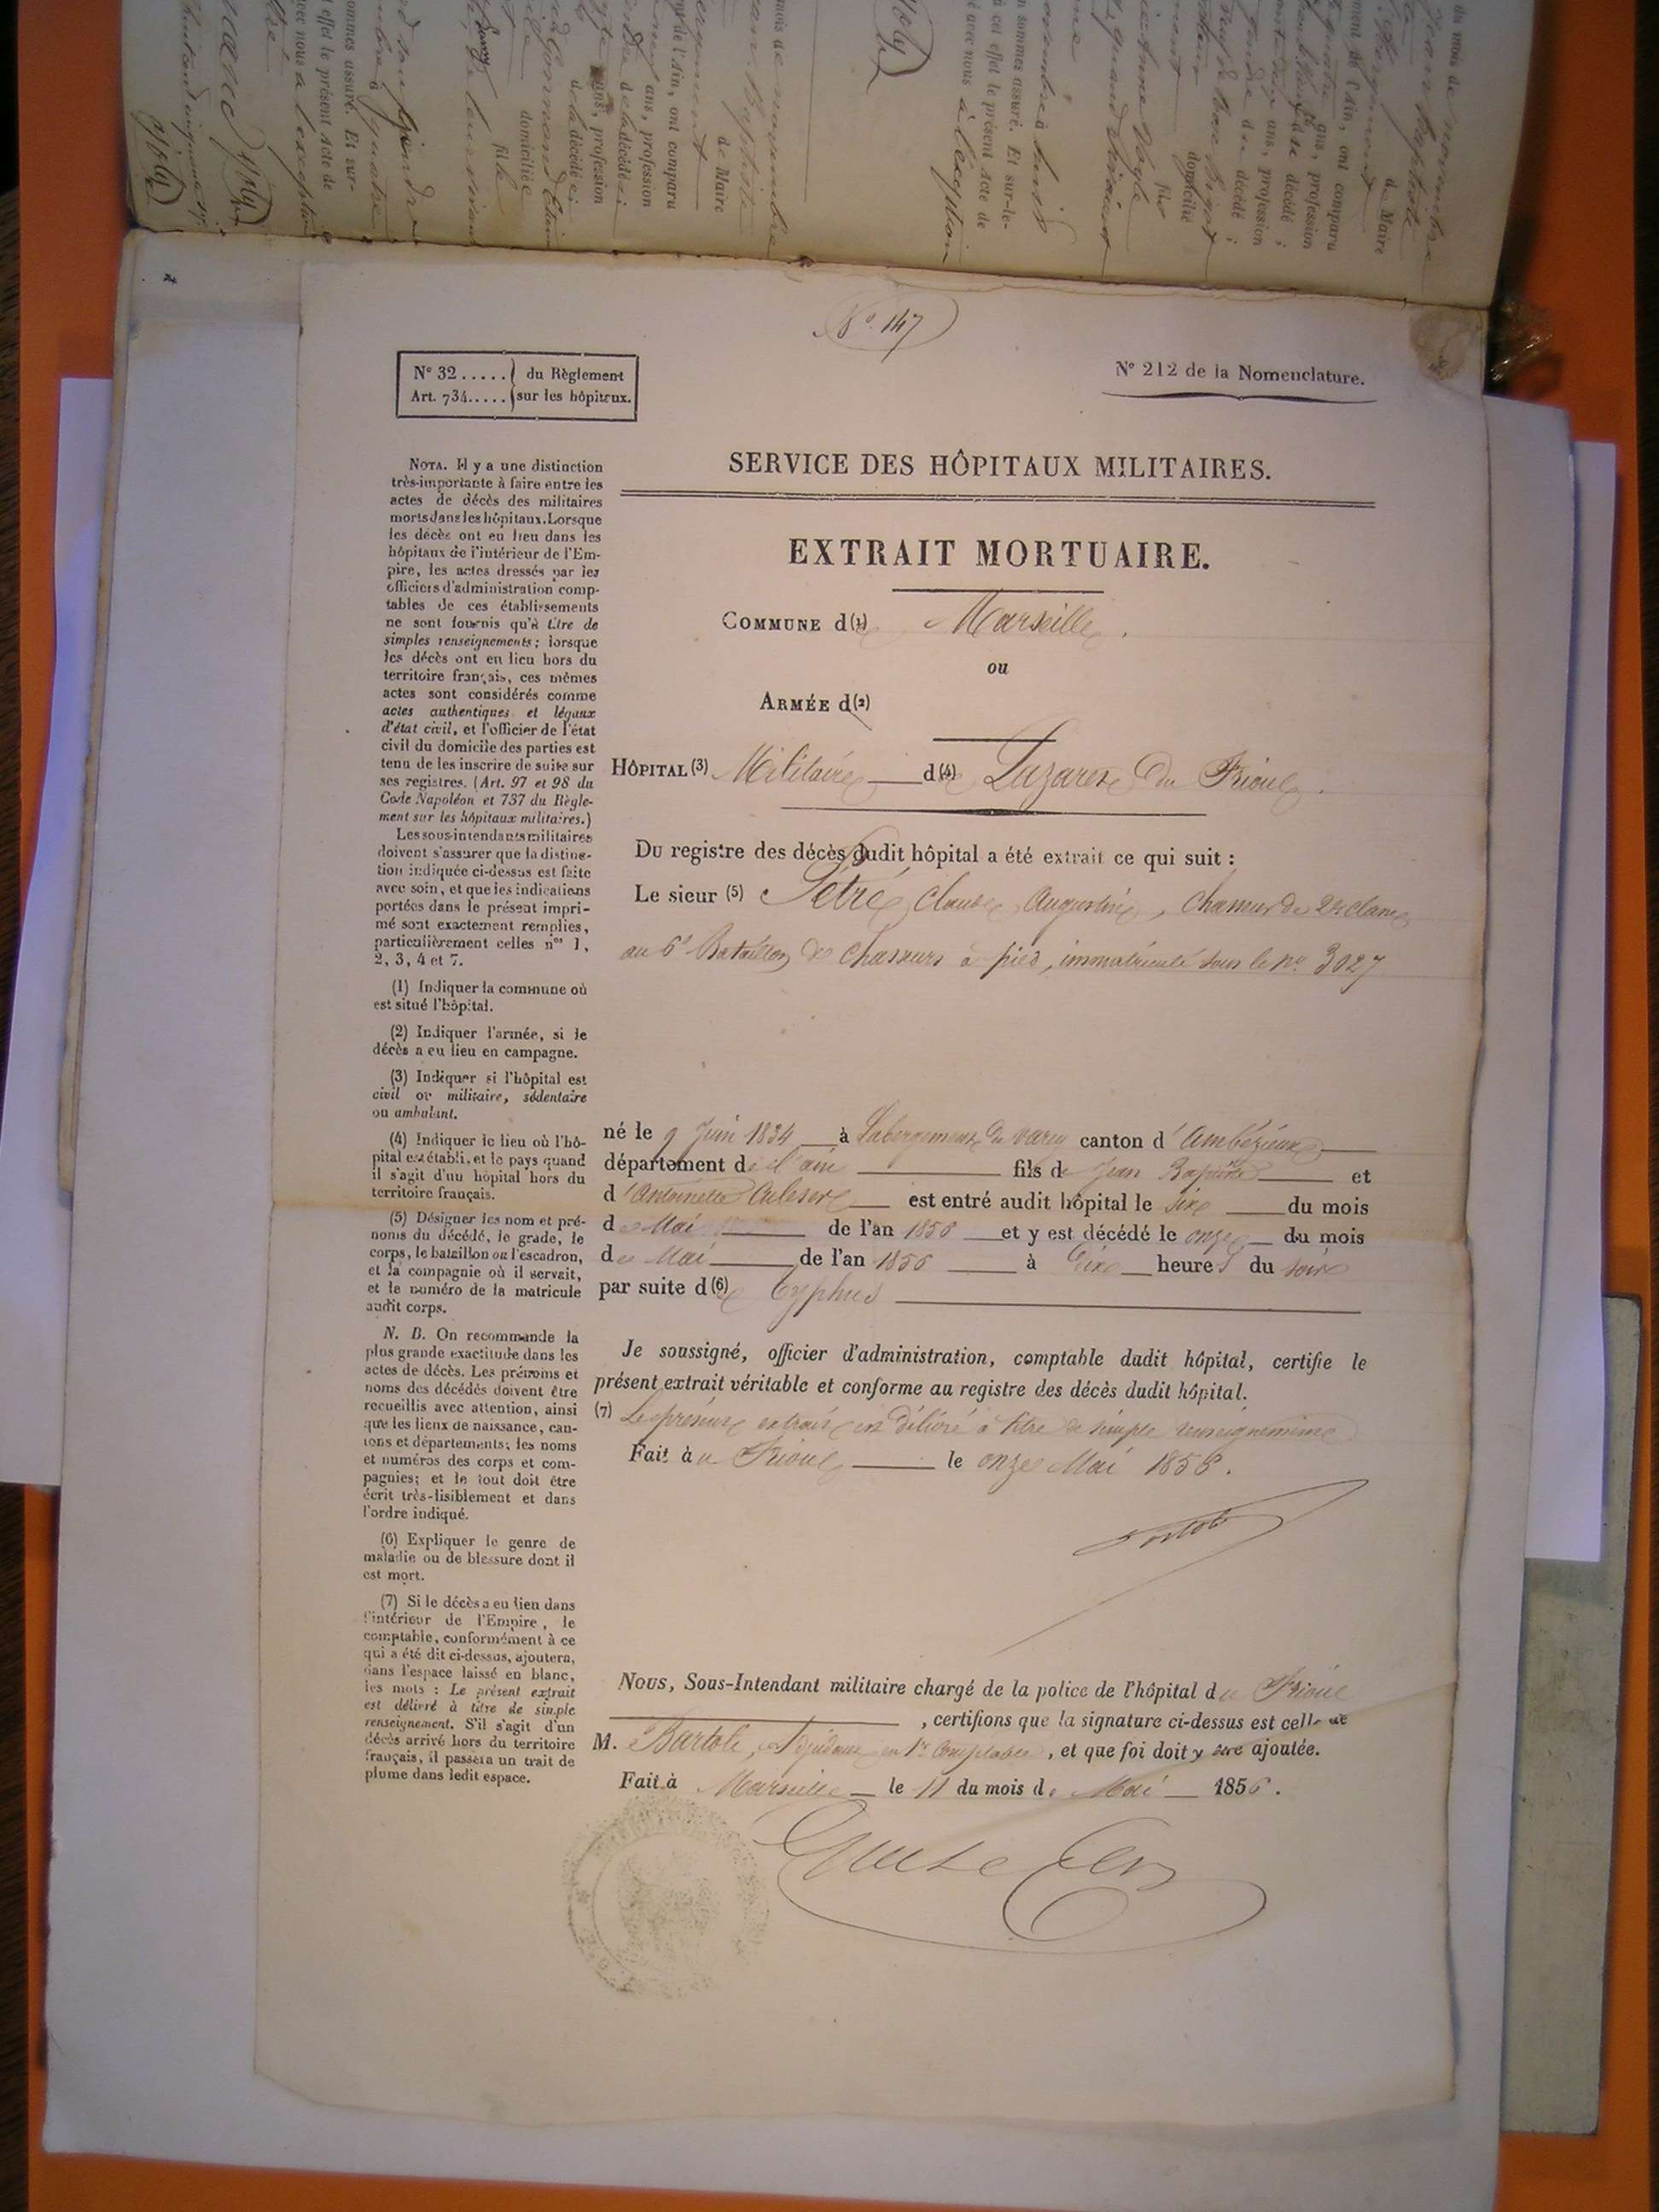 N° 147
N° 32..... du Règlement
Art. 734..... sur les hôpitaux.
N° 212 de la Nomenclature.
SERVICE DES HÔPITAUX MILITAIRES.
EXTRAIT MORTUAIRE.
COMMUNE de (1) Marseille.
ou
ARMÉE d (2)
HÔPITAL (3) Militaire d (4) Lazaret du Frioul.
Du registre des décès dudit hôpital a été extrait ce qui suit :
Le sieur (5) Claude Augustin, chasseur de 2e classe
au 6e Bataillon de chasseurs à pied, immatriculé sous le no 3027
né le 9 Juin 1834 à Labergement de varey canton d'Ambérieux
département de l'ain fils de Jean Baptiste et
d'Antoinette est entré audit hôpital le six du mois
de Mai de l'an 1856 et y est décédé le onze du mois
de Mai de l'an 1856 à heures du soir
par suite de (6) Typhus
Je soussigné, officier d'administration, comptable dudit hôpital, certifie le
présent extrait véritable et conforme au registre des décès dudit hôpital.
(7) Le présent extrait est délivré à titre de simple renseignement
Fait au Frioul le onze Mai 1856.
Nous, Sous-Intendant militaire chargé de la police de l'hôpital du Frioul
, certifions que la signature ci-dessus est celle de
M. Bartoli, comptable, et que foi doit y être ajoutée.
Fait à Marseille le 11 du mois de Mai 1856.
NOTA. Il y a une distinction
très-importante à faire entre les
actes de décès des militaires
morts dans les hôpitaux. Lorsque
les décès ont eu lieu dans les
hôpitaux de l'intérieur de l'Em-
pire, les actes dressés par les
officiers d'administration comp-
tables de ces établissements
ne sont fournis qu'à titre de
simples renseignements; lorsque
les décès ont eu lieu hors du
territoire français, ces mêmes
actes sont considérés comme
actes authentiques et légaux
d'état civil, et l'officier de l'état
civil du domicile des parties est
tenu de les inscrire de suite sur
ses registres. (Art. 97 et 98 du
Code Napoléon et 737 du Règle-
ment sur les hôpitaux militaires.)
Les sous-intendants militaires
doivent s'assurer que la distinc-
tion indiquée ci-dessus est faite
avec soin, et que les indications
portées dans le présent impri-
mé sont exactement remplies,
particulièrement celles nos 1,
2, 3, 4 et 7.
(1) Indiquer la commune où
est situé l'hôpital.
(2) Indiquer l'armée, si le
décès a eu lieu en campagne.
(3) Indiquer si l'hôpital est
civil ou militaire, sédentaire
ou ambulant.
(4) Indiquer le lieu où l'hô-
pital est établi, et le pays quand
il s'agit d'un hôpital hors du
territoire français.
(5) Désigner les nom et pré-
noms du décédé, le grade, le
corps, le bataillon ou l'escadron,
et la compagnie où il servait,
et le numéro de la matricule
audit corps.
N. B. On recommande la
plus grande exactitude dans les
actes de décès. Les prénoms et
noms des décédés doivent être
recueillis avec attention, ainsi
que les lieux de naissance, can-
tons et départements; les noms
et numéros des corps et com-
pagnies; et le tout doit être
écrit très-lisiblement et dans
l'ordre indiqué.
(6) Expliquer le genre de
maladie ou de blessure dont il
est mort.
(7) Si le décès a eu lieu dans
l'intérieur de l'Empire, le
comptable, conformément à ce
qui a été dit ci-dessus, ajoutera,
dans l'espace laissé en blanc,
les mots : Le présent extrait
est délivré à titre de simple
renseignement. S'il s'agit d'un
décès arrivé hors du territoire
français, il passera un trait de
plume dans ledit espace.